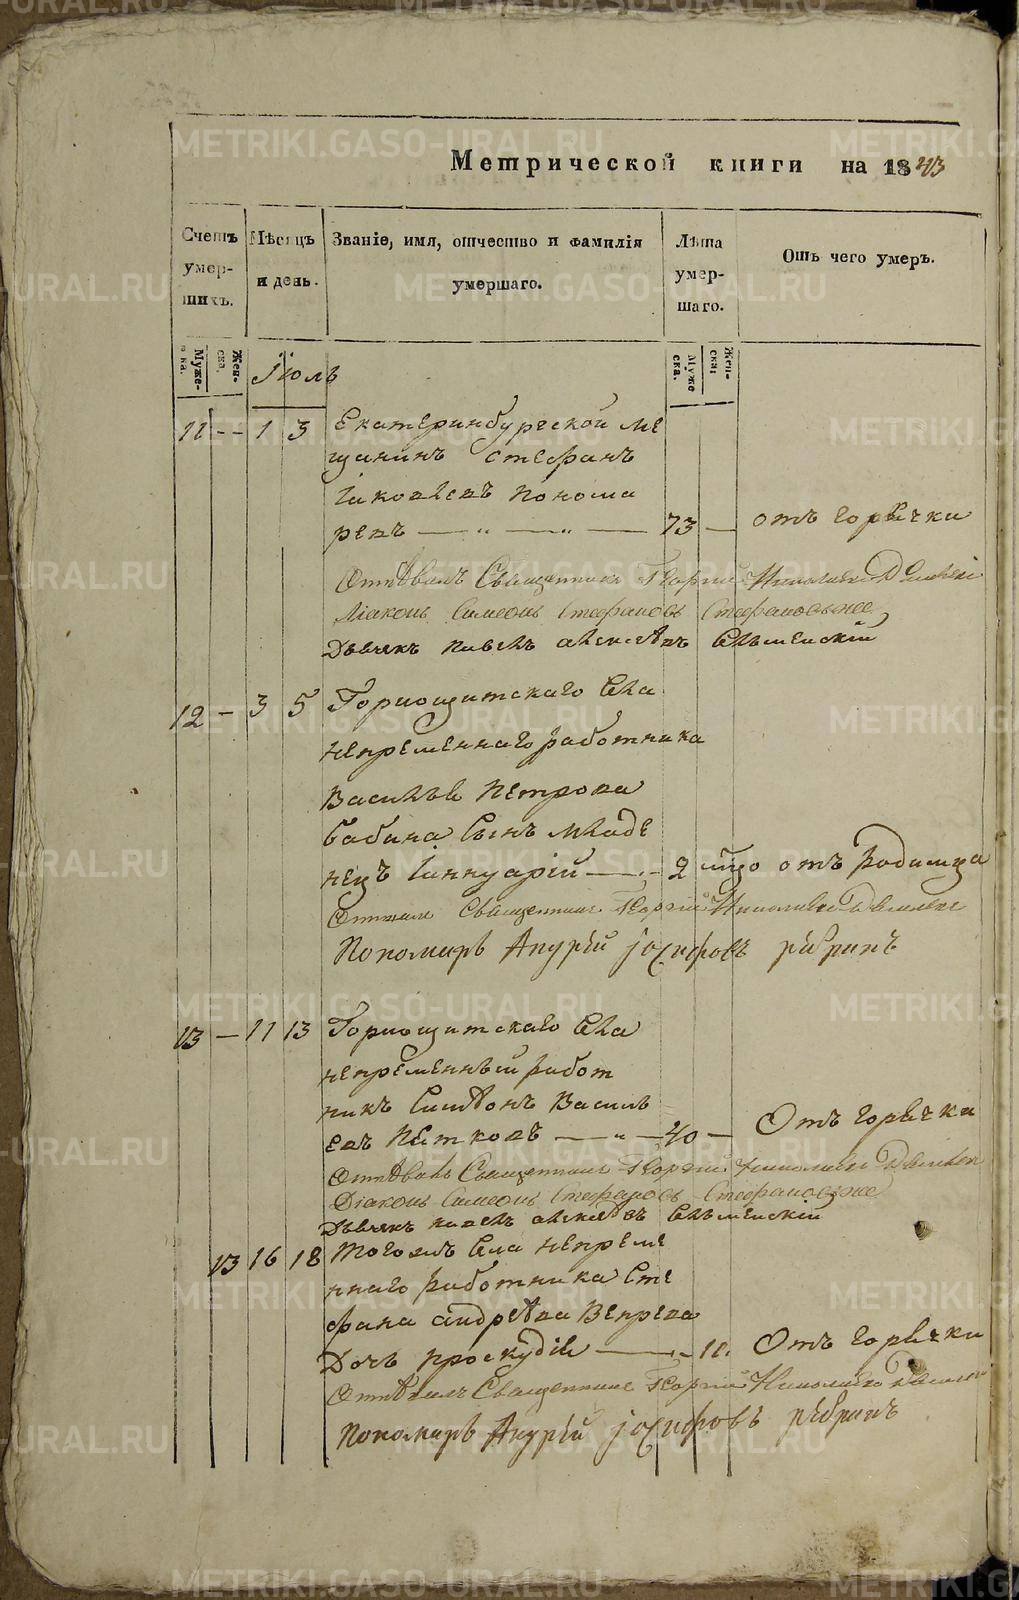 Метрической книги на 1843
Счетъ умершихъ.
Мѣсяцъ и день.
Званіе, имя, отчество и фамилія умершаго.
Лѣта умершаго.
Отъ чего умеръ.
Мужеска.
Женска.
Мужеска.
Женска.
Іюль
11 - - 1 3 Екатеринбургской ме
щанинъ Стефанъ
Іаковлевъ Понома
ревъ 73 — отъ горячки
Отпѣвалъ Священникъ Георгій Николаевъ
Діаконъ Симеонъ Стефановъ
Дьячекъ Павелъ Алексѣевъ
12 - 3 5 Горнощитскаго Села
непременнаго работника
Василья Петрова
бабина Сынъ младе
нецъ Іаннуарій 2 отъ родимца
Священникъ Георгій Николаевъ
Пономарь Андрій Іосифовъ
13 - 11 13 Горнощитскаго Села
непременный работ
никъ Симѣонъ Василь
евъ Пѣтковъ — 40 — Отъ горячки
Отпѣвалъ Священникъ Георгій Николаевъ
Діаконъ Симеонъ Стефановъ
Дьячекъ Павелъ Алексѣевъ
13 16 18 Тогожъ Села непреме
ннаго работника Сте
фана Андрѣева Вепрева
Дочь 11. Отъ горячки
Отпѣвалъ Священникъ Георгій Николаевъ
Пономарь Андрій Іосифовъ
METRIKI.GASO-URAL.RU